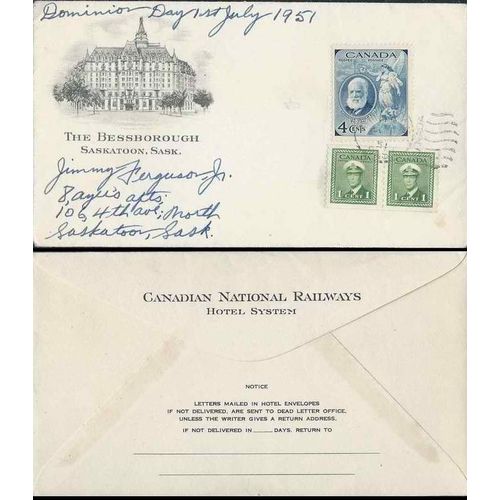 Dominion Day 1st July 1951
CANADA
POSTES POSTAGE
4 CENTS
THE BESSBOROUGH
SASKATOON, SASK.
Jimmy Ferguson, Jr.
apts,
106 4th ave; North
Saskatoon, Sask.
CANADA CANADA
1 CENT 1 1 CENT 1
CANADIAN NATIONAL RAILWAYS
HOTEL SYSTEM
NOTICE
LETTERS MAILED IN HOTEL ENVELOPES
IF NOT DELIVERED, ARE SENT TO DEAD LETTER OFFICE,
UNLESS THE WRITER GIVES A RETURN ADDRESS.
IF NOT DELIVERED IN_____DAYS, RETURN TO